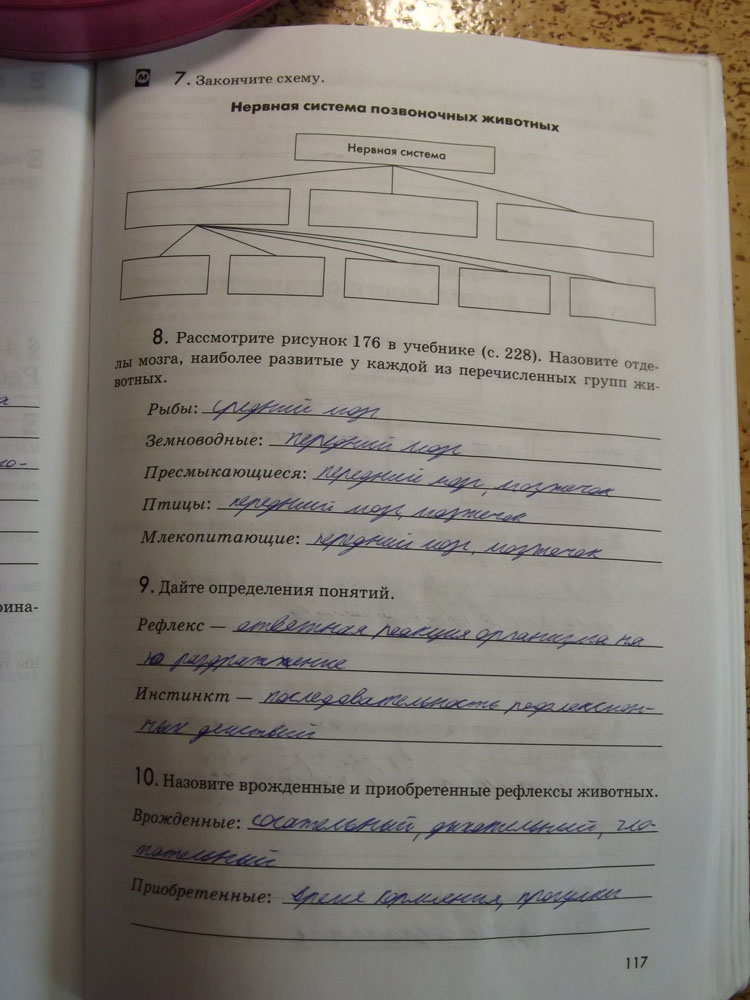 7. Закончите схему.
Нервная система позвоночных животных
Нервная система
8. Рассмотрите рисунок 176 в учебнике (с. 228). Назовите отде-
лы мозга, наиболее развитые у каждой из перечисленных групп жи-
вотных.
Рыбы: средний мозг
Земноводные: передний мозг
Пресмыкающиеся: передний мозг, мозжечок
Птицы: передний мозг, мозжечок
Млекопитающие: передний мозг, мозжечок
9. Дайте определения понятий.
Рефлекс — ответная реакция организма на
на раздражение
Инстинкт — последовательность рефлексион-
ных действий
10. Назовите врожденные и приобретенные рефлексы животных.
Врожденные: сосательный, дыхательный, гло-
тательный
Приобретенные: время кормления, прогулки
117